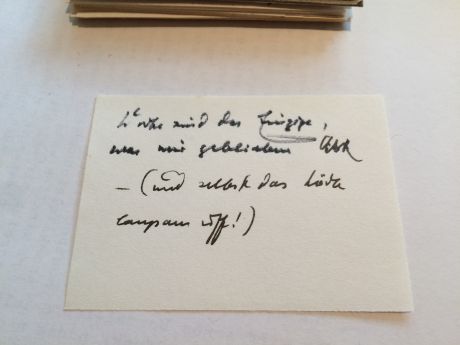 sind das Einzige,
was mir geblieben
– (und selbst das hört
langsam auf!)